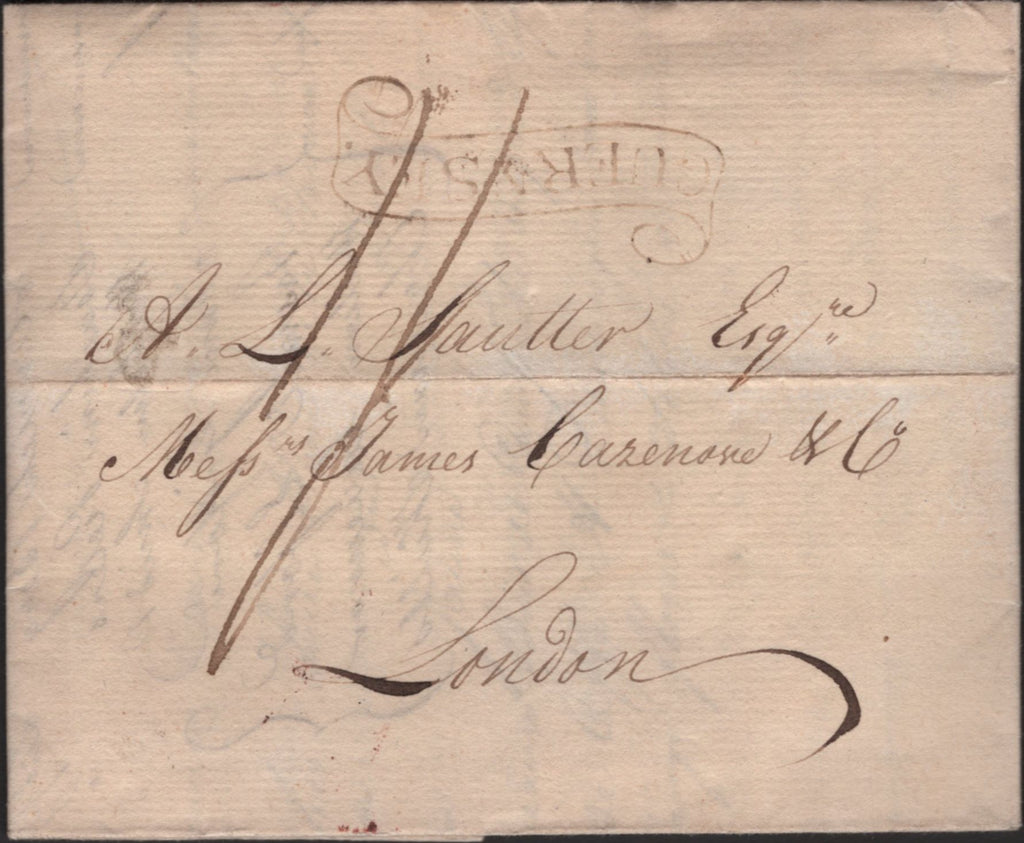 GUERNSEY.
11
A. L. Sautter Esqre
Messrs James Cazenove & Co
London